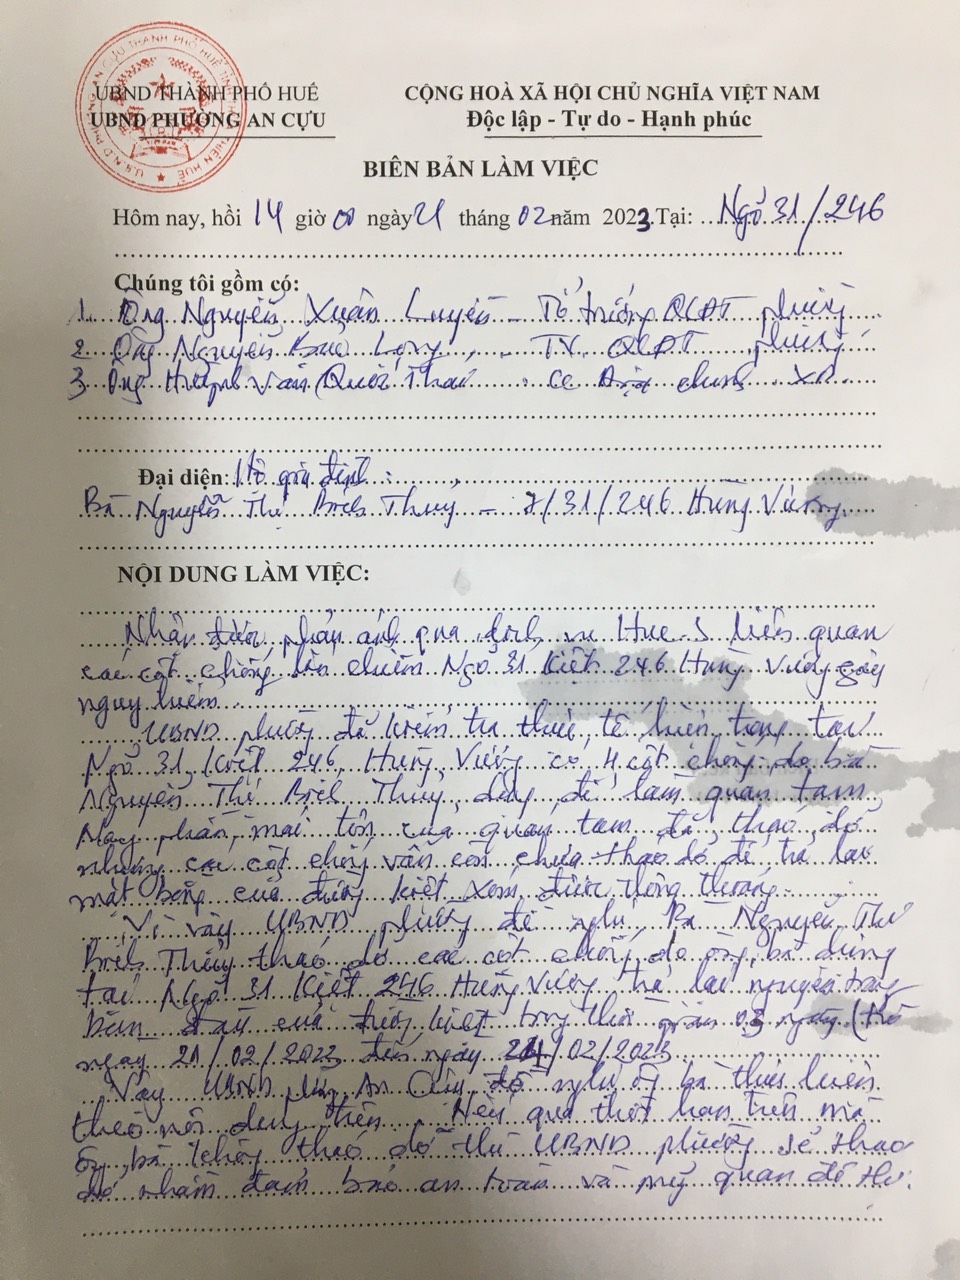 UBND THÀNH PHỐ HUẾ
UBND PHƯỜNG AN CỰU
CỘNG HOÀ XÃ HỘI CHỦ NGHĨA VIỆT NAM
Độc lập - Tự do - Hạnh phúc
BIÊN BẢN LÀM VIỆC
Hôm nay, hồi 14 giờ 00 ngày 21 tháng 02 năm 2023. Tại: Ngõ 31/246
Chúng tôi gồm có:
1. Ông Nguyễn Xuân Luyến - Tổ trưởng QLĐT phường
2. Ông Nguyễn Bảo Long - TV QLĐT phường
3. Ông Huỳnh Văn Quốc Thái CC Địa chính XD
Đại diện: Hộ gia đình:
Bà Nguyễn Thị Bích Thủy - 7/31/246 Hùng Vương
NỘI DUNG LÀM VIỆC:
Nhận được phản ánh qua dịch vụ Hue-S liên quan
các cột chống lấn chiếm Ngõ 31 Kiệt 246 Hùng Vương gây
nguy hiểm.
UBND phường đã kiểm tra thực tế hiện trạng tại
Ngõ 31 Kiệt 246 Hùng Vương có 4 cột chống do bà
Nguyễn Thị Bích Thủy dùng để làm quán tạm
Nay phần mái tôn của quán tạm đã tháo dỡ
nhưng các cột chống vẫn còn chưa tháo dỡ để trả lại
mặt bằng của đường kiệt xóm được thông thoáng.
Vì vậy UBND phường đề nghị Bà Nguyễn Thị
Bích Thủy tháo dỡ các cột chống do ông, bà dùng
tại Ngõ 31 Kiệt 246 Hùng Vương trả lại nguyên trạng
ban đầu của đường kiệt trong thời gian 03 ngày (từ
ngày 21/02/2023 đến ngày 24/02/2023
Vậy UBND phường An Cựu đề nghị ông bà thực hiện
theo nội dung trên. Nếu quá thời hạn trên mà
ông, bà không tháo dỡ thì UBND phường sẽ tháo
dỡ nhằm đảm bảo an toàn và mỹ quan đô thị.